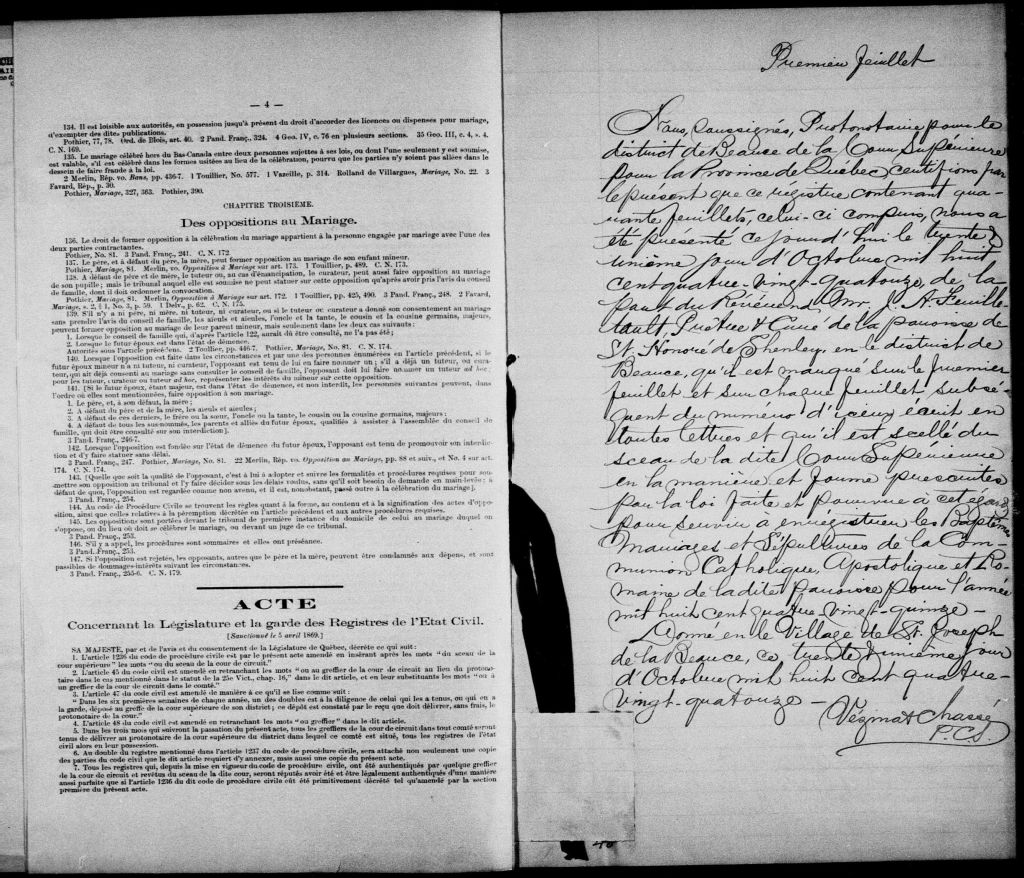 — 4 —
134. Il est loisible aux autorités, en possession jusqu'à présent du droit d'accorder des licences ou dispenses pour mariage,
d'exempter des dites publications.
Pothier, 77, 78. Ord. de Blois, art. 40. 2 Pand. Franç., 324. 4 Geo. IV, c. 76 en plusieurs sections. 35 Geo. III, c. 4, s. 4.
C. N. 169.
135. Le mariage célébré hors du Bas-Canada entre deux personnes sujettes à ses lois, ou dont l'une seulement y est soumise,
est valable, s'il est célébré dans les formes usitées au lieu de la célébration, pourvu que les parties n'y soient pas allées dans le
dessein de faire fraude à la loi.
2 Merlin, Rép. vo. Bans, pp. 436-7. 1 Touillier, No. 577. 1 Vazeille, p. 314. Rolland de Villargues, Mariage, No. 22. 3
Favard, Rép., p. 30.
Pothier, Mariage, 327, 363. Pothier, 390.
CHAPITRE TROISIÈME.
Des oppositions au Mariage.
136. Le droit de former opposition à la célébration du mariage appartient à la personne engagée par mariage avec l'une des
deux parties contractantes.
Pothier, No. 81. 3 Pand. Franç., 241. C. N. 172.
137. Le père, et à défaut du père, la mère, peut former opposition au mariage de son enfant mineur.
Pothier, Mariage, 81. Merlin, vo. Opposition à Mariage sur art. 173. 1 Touillier, p. 489. C. N. 173.
138. A défaut de père et de mère, le tuteur ou, au cas d'émancipation, le curateur, peut aussi faire opposition au mariage
de son pupille; mais le tribunal auquel elle est soumise ne peut statuer sur cette opposition qu'après avoir pris l'avis du conseil
de famille, dont il doit ordonner la convocation.
Pothier, Mariage, 81. Merlin, Opposition à Mariage sur art. 172. 1 Touillier, pp. 425, 490. 3 Pand. Franç., 248. 2 Favard,
Mariage, s. 2, § 1, No. 3, p. 59. 1 Delv., p. 62. C. N. 175.
139. S'il n'y a ni père, ni mère, ni tuteur, ni curateur, ou si le tuteur ou curateur a donné son consentement au mariage
sans prendre l'avis du conseil de famille, les aïeuls et aïeules, l'oncle et la tante, le cousin et la cousine germains, majeurs,
peuvent former opposition au mariage de leur parent mineur, mais seulement dans les deux cas suivants:
1. Lorsque le conseil de famille qui, d'après l'article 122, aurait dû être consulté, ne l'a pas été;
2. Lorsque le futur époux est dans l'état de démence.
Autorités sous l'article précédent. 2 Touillier, pp. 446-7. Pothier, Mariage, No. 81. C. N. 174.
140. Lorsque l'opposition est faite dans les circonstances et par une des personnes énumérées en l'article précédent, si le
futur époux mineur n'a ni tuteur, ni curateur, l'opposant est tenu de lui en faire nommer un; s'il a déjà un tuteur, ou cura-
teur, qui ait déjà consenti au mariage sans consulter le conseil de famille, l'opposant doit lui faire nommer un tuteur ad hoc;
pour les tuteur, curateur ou tuteur ad hoc, représenter les intérêts du mineur sur cette opposition.
141. [Si le futur époux, étant majeur, est dans l'état de démence, et non interdit, les personnes suivantes peuvent, dans
l'ordre où elles sont mentionnées, faire opposition à son mariage.
1. Le père, et, à son défaut, la mère;
2. A défaut du père et de la mère, les aïeuls et aïeules;
3. A défaut de ces derniers, le frère ou la sœur, l'oncle ou la tante, le cousin ou la cousine germains, majeurs;
4. A défaut de tous les sus-nommés, les parents et alliés du futur époux, qualifiés à assister à l'assemblée du conseil de
famille, qui doit être consulté sur son interdiction].
3 Pand. Franç., 246-7.
142. Lorsque l'opposition est fondée sur l'état de démence du futur époux, l'opposant est tenu de promouvoir son interdic-
tion et d'y faire statuer sans délai.
3 Pand. Franç., 247. Pothier, Mariage, No. 81. 22 Merlin, Rép. vo. Opposition au Mariage, pp. 88 et suiv., et No. 4 sur art.
174. C. N. 174.
143. [Quelle que soit la qualité de l'opposant, c'est à lui à adopter et suivre les formalités et procédures requises pour sou-
mettre son opposition au tribunal et l'y faire décider sous les délais voulus, sans qu'il soit besoin de demande en main-levée; à
défaut de quoi, l'opposition est regardée comme non avenu, et il est, nonobstant, passé outre à la célébration du mariage].
3 Pand. Franç., 254.
144. Au code de Procédure Civile se trouvent les règles quant à la forme, au contenu et à la signification des actes d'oppo-
sition, ainsi que celles relatives à la péremption décrétée en l'article précédent et aux autres procédures requises.
145. Les oppositions sont portées devant le tribunal de première instance du domicile de celui au mariage duquel on
s'oppose, ou du lieu où doit se célébrer le mariage, ou devant un juge de ce tribunal.
3 Pand. Franç., 253.
146. S'il y a appel, les procédures sont sommaires et elles ont préséance.
3 Pand. Franç., 253.
147. Si l'opposition est rejetée, les opposants, autres que le père et la mère, peuvent être condamnés aux dépens, et sont
passibles de dommages-intérêts suivant les circonstances.
3 Pand. Franç., 255-6. C. N. 179.
ACTE
Concernant la Législature et la garde des Registres de l'Etat Civil.
[Sanctionné le 5 avril 1869.]
SA MAJESTE, par et de l'avis et du consentement de la Législature de Québec, décrète ce qui suit:
1. L'article 1236 du code de procédure civile est par le présent acte amendé en insérant après les mots "du sceau de la
cour supérieure" les mots "ou du sceau de la cour de circuit."
2. L'article 45 du code civil est amendé en retranchant les mots "ou au greffier de la cour de circuit au lieu du protono-
taire dans le cas mentionné dans le statut de la 25e Vict., chap. 16," dans le dit article, et en leur substituants les mots "ou à
un greffier de la cour de circuit dans le comté."
3. L'article 47 du code civil est amendé de manière à ce qu'il se lise comme suit:
"Dans les six premières semaines de chaque année, un des doubles est à la diligence de celui qui les a tenus, ou qui en a
la garde, déposé au greffe de la cour supérieure de son district; ce dépôt est constaté par le reçu que doit délivrer, sans frais, le
protonotaire de la cour."
4. L'article 48 du code civil est amendé en retranchant les mots "ou greffier" dans le dit article.
5. Dans les trois mois qui suivront la passation du présent acte, tous les greffiers de la cour de circuit dans tout comté seront
tenus de délivrer au protonotaire de la cour supérieure du district dans lequel ce comté est situé, tous les registres de l'état
civil alors en leur possession.
6. Au double du registre mentionné dans l'article 1237 du code de procédure civile, sera attaché non seulement une copie
des parties du code civil que le dit article requiert d'y annexer, mais aussi une copie du présent acte.
7. Tous les registres qui, depuis la mise en vigueur du code de procédure civile, ont été authentiqués par quelque greffier
de la cour de circuit et revêtus du sceau de la dite cour, seront réputés avoir été et être légalement authentiqués d'une manière
aussi parfaite que si l'article 1236 du dit code de procédure civile eût été primitivement décrété tel qu'amendé par la section
première du présent acte.
Premier feuillet
Nous, soussignés, Protonotaire pour le
district de Beauce de la Cour Supérieure
pour la Province de Québec certifions par
le présent que ce régistre contenant qua-
rante feuillets, celui-ci compris, nous a
été présenté ce jourd'hui le trente &
unième jour d'Octobre mil huit
cent quatre-vingt-quatorze, de la
part du Révérend Mr J. A. Feuille-
tault Prêtre & Curé de la paroisse de
St. Honoré de Shenley, en le district de
Beauce, qu'il est marqué sur le premier
feuillet et sur chaque feuillet subsé-
quent du numéro d'iceux écrit en
toutes lettres et qu'il est scellé du
sceau de la dite Cour Supérieure
en la manière et forme prescrites
par la loi faite et pourvue à cet égard
pour servir a enrégistrer les Baptêmes
Mariages et Sépultures de la Com-
munion Catholique, Apostolique et Ro-
maine de la dite paroisse pour l'année
mil huit cent quatre-vingt-quinze —
Donné en le Village de St. Joseph
de la Beauce, ce trente & unième jour
d'Octobre mil huit cent quatre-
vingt-quatorze —
Vézina & Chassé
P.C.S.